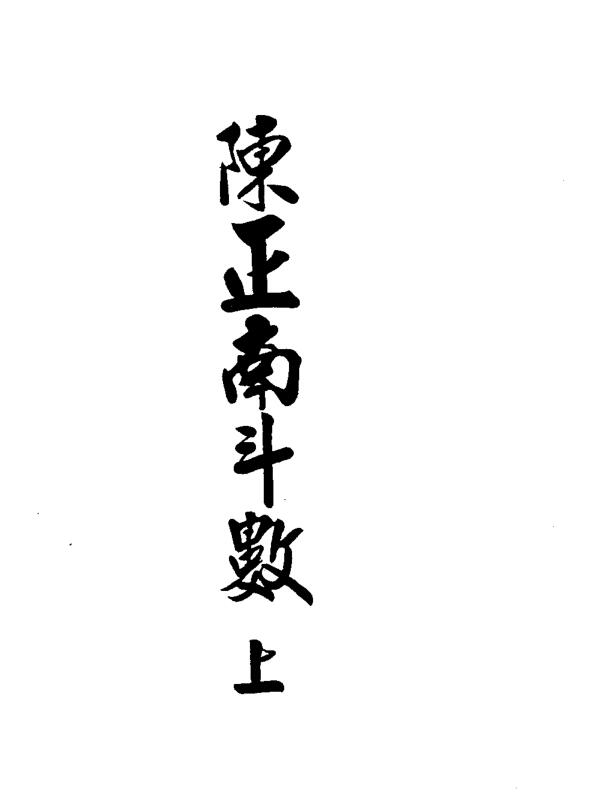 陳正南斗數 上